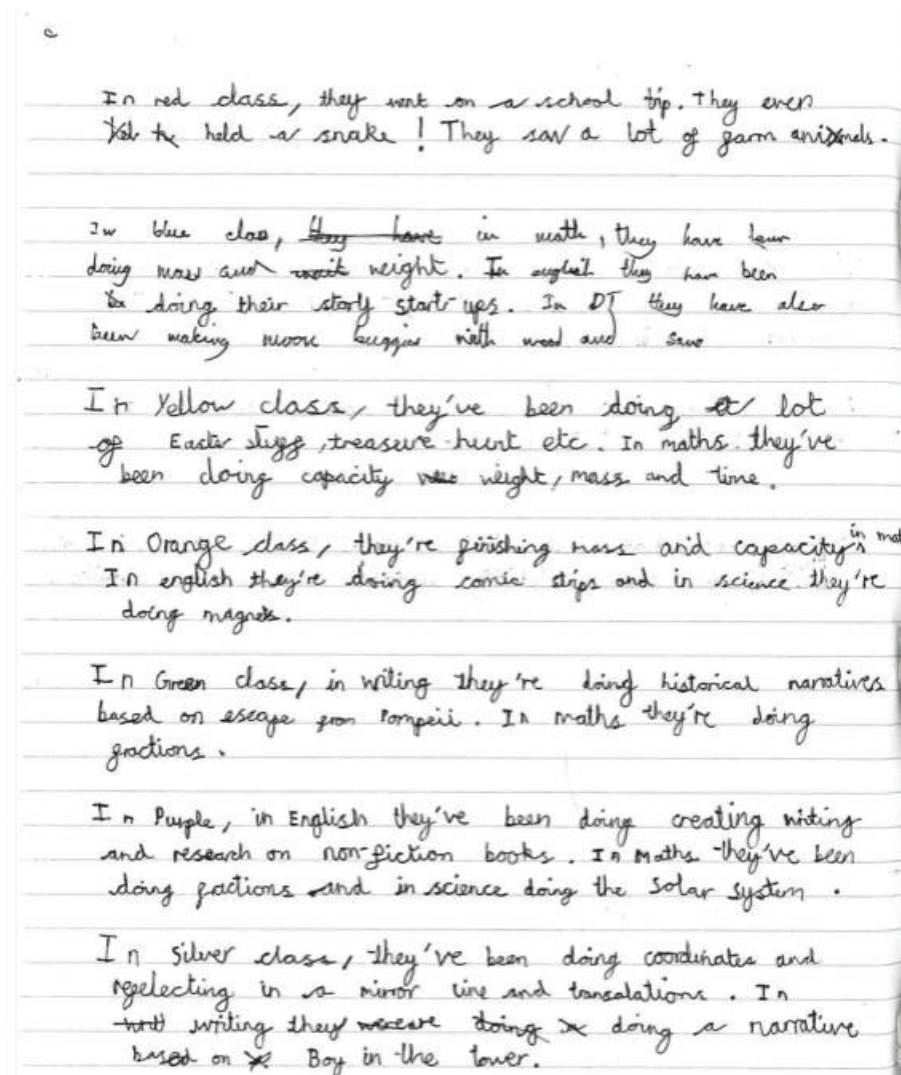 In red class, they went on a school trip. They even
held a snake! They saw a lot of farm animals.
In blue class, they have in math, they have been
doing mass and weight. In english they have been
doing their story start-ups. In DT they have also
been making moon buggies with wood and saws
In Yellow class, they've been doing a lot
of Easter stuff, treasure hunt etc. In maths they've
been doing capacity weight, mass and time.
In Orange class, they're finishing mass and capacity in
In english they're doing comic strips and in science they're
doing magnets.
In Green class, in writing they're doing historical narratives
based on escape from Pompeii. In maths they're doing
fractions.
In Purple, in English they've been doing creating writing
and research on non-fiction books. In Maths they've been
doing fractions and in science doing the Solar system.
In Silver class, they've been doing coordinates and
refelecting in a mirror line and tansalations. In
writing they doing doing a narrative
based on Boy in the tower.